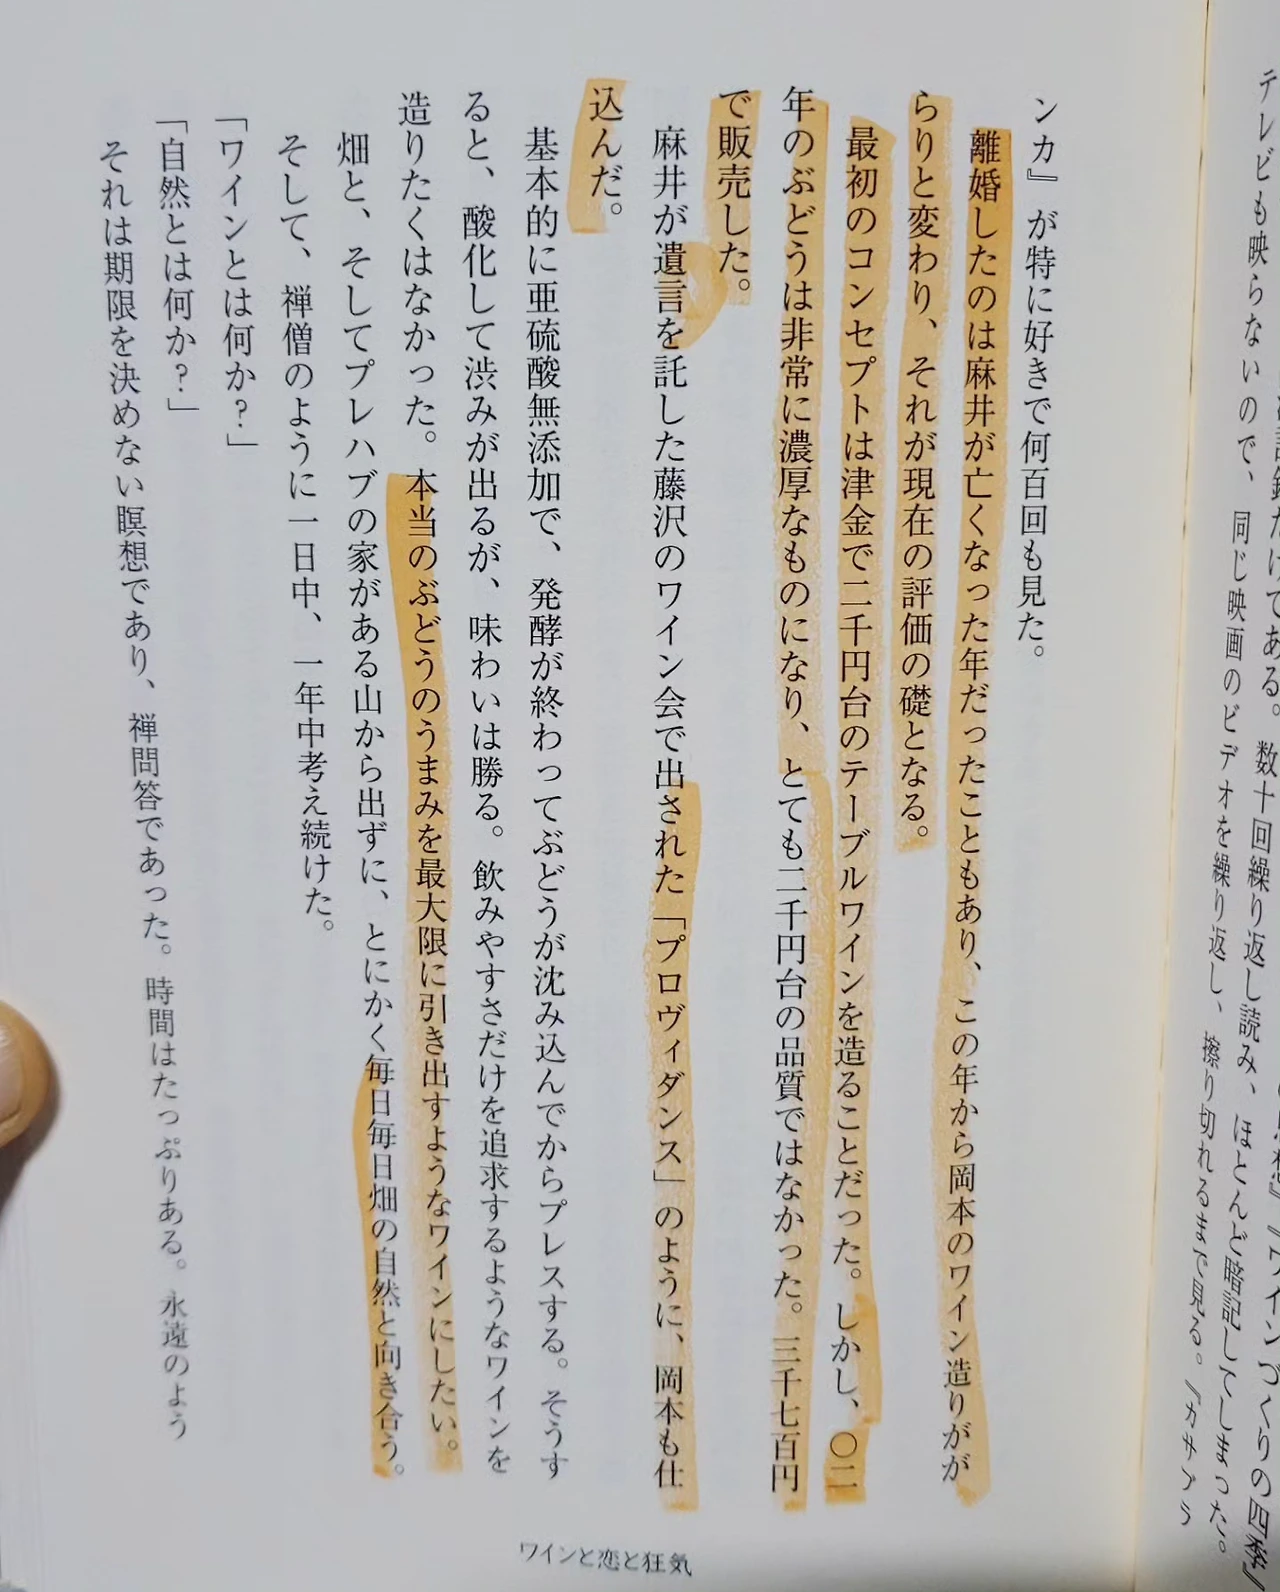 テレビも映らないので、同じ映画のビデオを繰り返し、擦り切れるまで見る。『カサブラ
ンカ』が特に好きで何百回も見た。
離婚したのは麻井が亡くなった年だったこともあり、この年から岡本のワイン造りがが
らりと変わり、それが現在の評価の礎となる。
最初のコンセプトは津金で二千円台のテーブルワインを造ることだった。しかし、〇二
年のぶどうは非常に濃厚なものになり、とても二千円台の品質ではなかった。三千七百円
で販売した。
麻井が遺言を託した藤沢のワイン会で出された「プロヴィダンス」のように、岡本も仕
込んだ。
基本的に亜硫酸無添加で、発酵が終わってぶどうが沈み込んでからプレスする。そうす
ると、酸化して渋みが出るが、味わいは勝る。飲みやすさだけを追求するようなワインを
造りたくはなかった。本当のぶどうのうまみを最大限に引き出すようなワインにしたい。
畑と、そしてプレハブの家がある山から出ずに、とにかく毎日毎日畑の自然と向き合う。
そして、禅僧のように一日中、一年中考え続けた。
「ワインとは何か？」
「自然とは何か？」
それは期限を決めない瞑想であり、禅問答であった。時間はたっぷりある。永遠のよう
ワインと恋と狂気